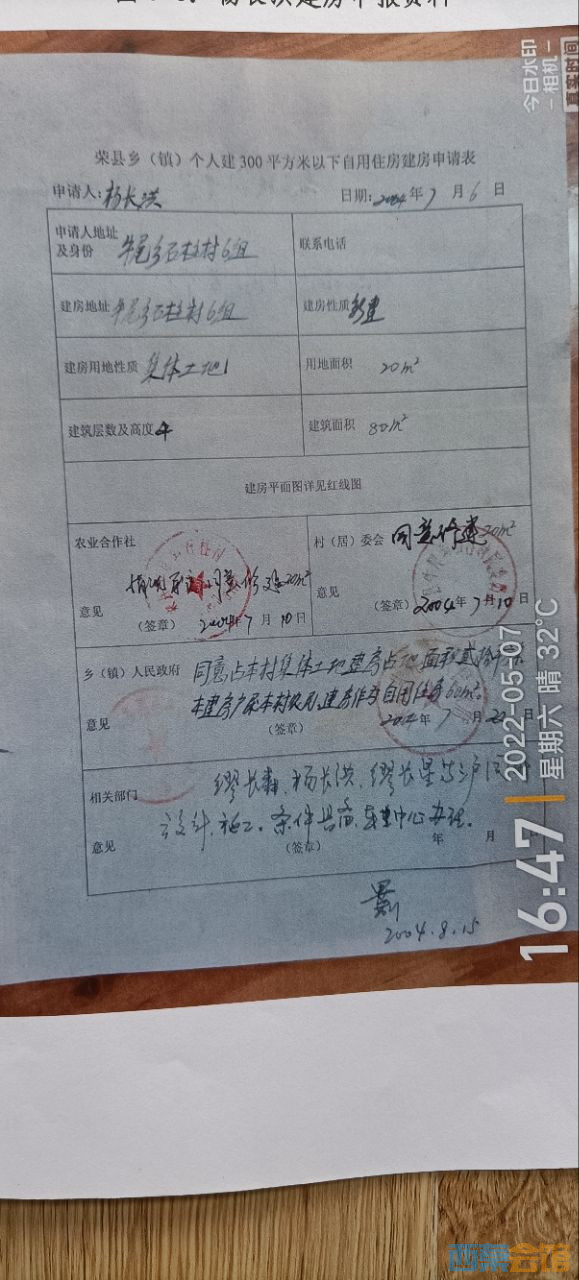 荣县乡（镇）个人建300平方米以下自用住房建房申请表
申请人：杨长洪 日期：2004年7月6日
申请人地址及身份 牛尾乡石柱村6组 联系电话
建房地址 牛尾乡石柱村6组 建房性质 新建
建房用地性质 集体土地 用地面积 20m²
建筑层数及高度 4 建筑面积 80m²
建房平面图详见红线图
农业合作社 同意修建20m²
意见 （签章） 2004年7月10日
村（居）委会 同意修建20m²
意见 （签章） 2004年7月10日
乡（镇）人民政府 同意占本村集体土地建房占地面积贰拾
本建房户系本村农户，建房作为自用住房
意见 （签章） 2004年7月22日
相关部门 缪长森、杨长洪、缪长星
设计、施工。条件具备，中心办理。
意见 （签章） 年 月
2004.8.15
今日水印
-相机-
真实时间
16:47
2022-05-07
星期六 晴 32℃